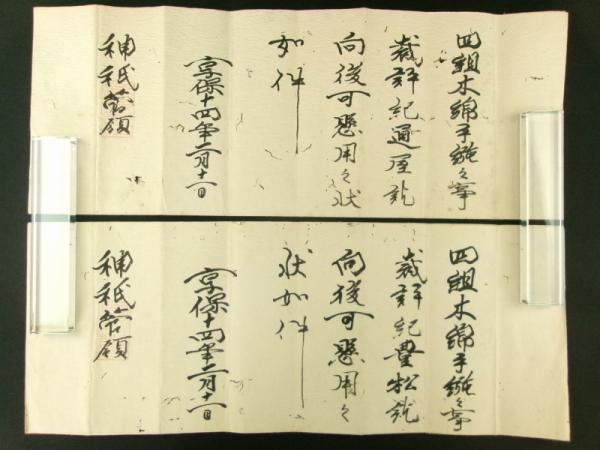 四組木綿手繦之事
裁許紀通屋訖
向後可懸用之状
如件
享保十四年二月十一日
神祇管領
四組木綿手繦之事
裁許紀豊松訖
向後可懸用之
状如件
享保十四年二月十一日
神祇管領